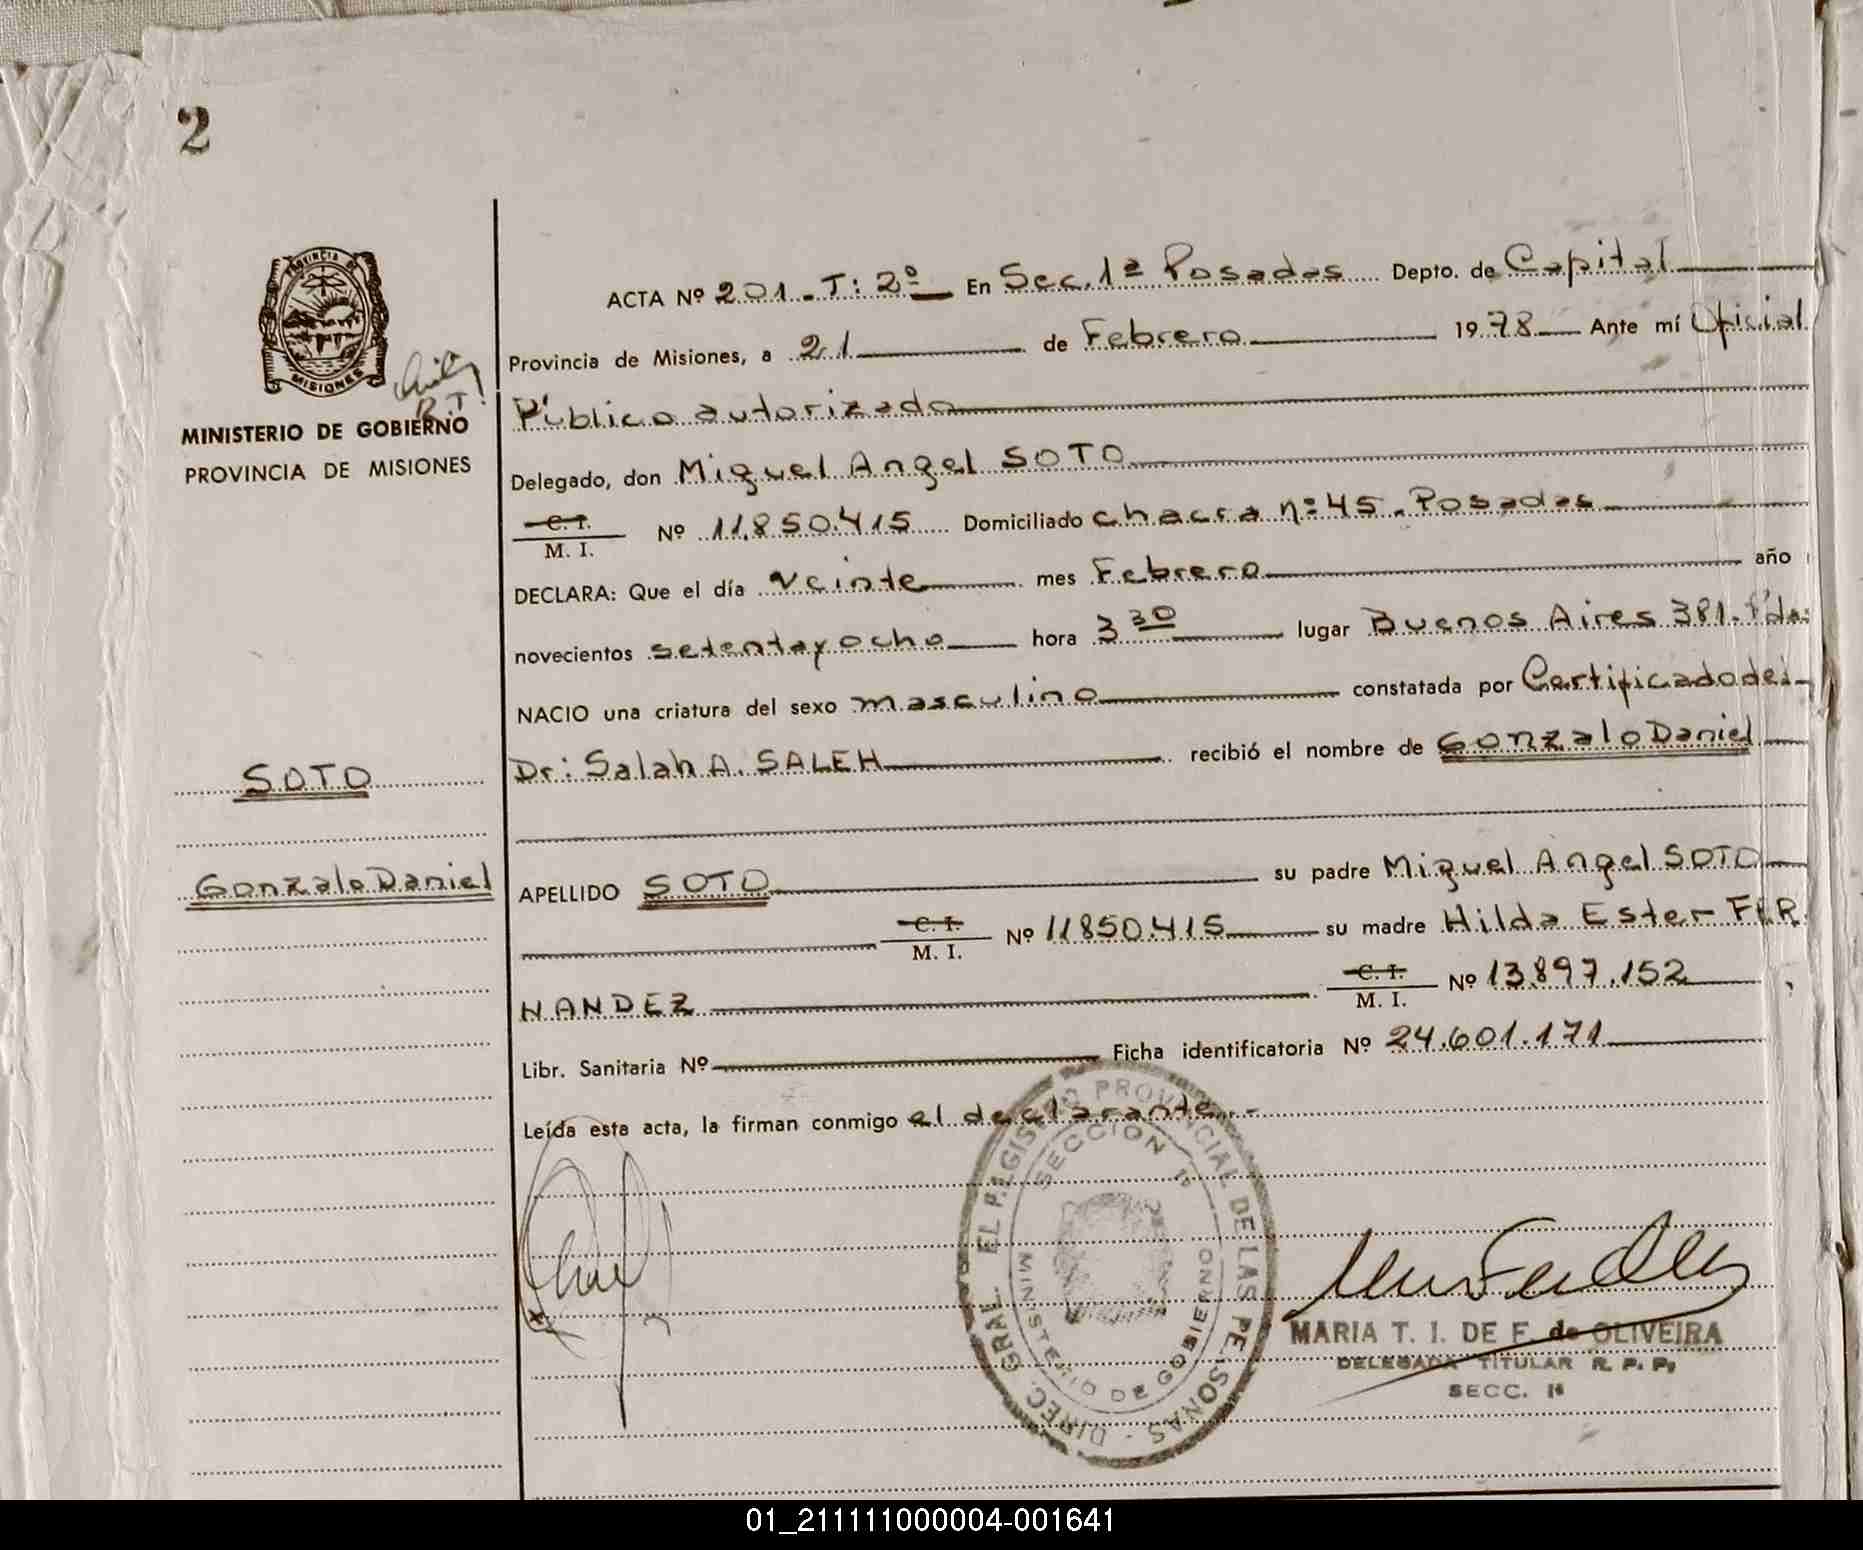 2
PROVINCIA DE
MISIONES
MINISTERIO DE GOBIERNO
PROVINCIA DE MISIONES
SOTO
Gonzalo Daniel
ACTA Nº 201. T: 2º En Sec. 1ª Posadas Depto. de Capital
Provincia de Misiones, a 21 de Febrero 1978 Ante mí Oficial
Público autorizado
Delegado, don Miguel Angel SOTO
C. I.
M. I. Nº 11.850.415 Domiciliado chacra nº 45. Posadas
DECLARA: Que el día veinte mes Febrero año
novecientos setenta y ocho hora 3 30 lugar Buenos Aires 381. Pdas
NACIO una criatura del sexo masculino constatada por Certificado del
Dr: Salah A. SALEH recibió el nombre de Gonzalo Daniel
APELLIDO SOTO su padre Miguel Angel SOTO
C. I.
M. I. Nº 11850.415 su madre Hilda Ester FER
NANDEZ C. I.
M. I. Nº 13.897.152
Libr. Sanitaria Nº Ficha identificatoria Nº 24.601.171
Leída esta acta, la firman conmigo el declarante.-
SECCION 1ª
MINISTERIO DE GOBIERNO
PROVINCIAL DE LAS PERSONAS - DIREC. GRAL.
MARIA T. I. DE F. de OLIVEIRA
DELEGADA TITULAR R. P. P.
SECC.
01_211111000004-001641